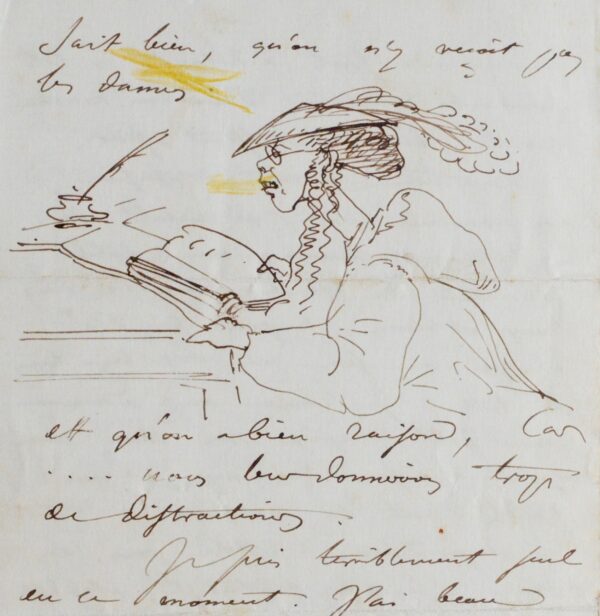 Sait bien, qu'on n'y reçoit pas
les dames.
et qu'on a bien raison, Car
.... nous leur donnerions trop
de distractions.
Je suis terriblement seul
en ce moment. J'ai beau